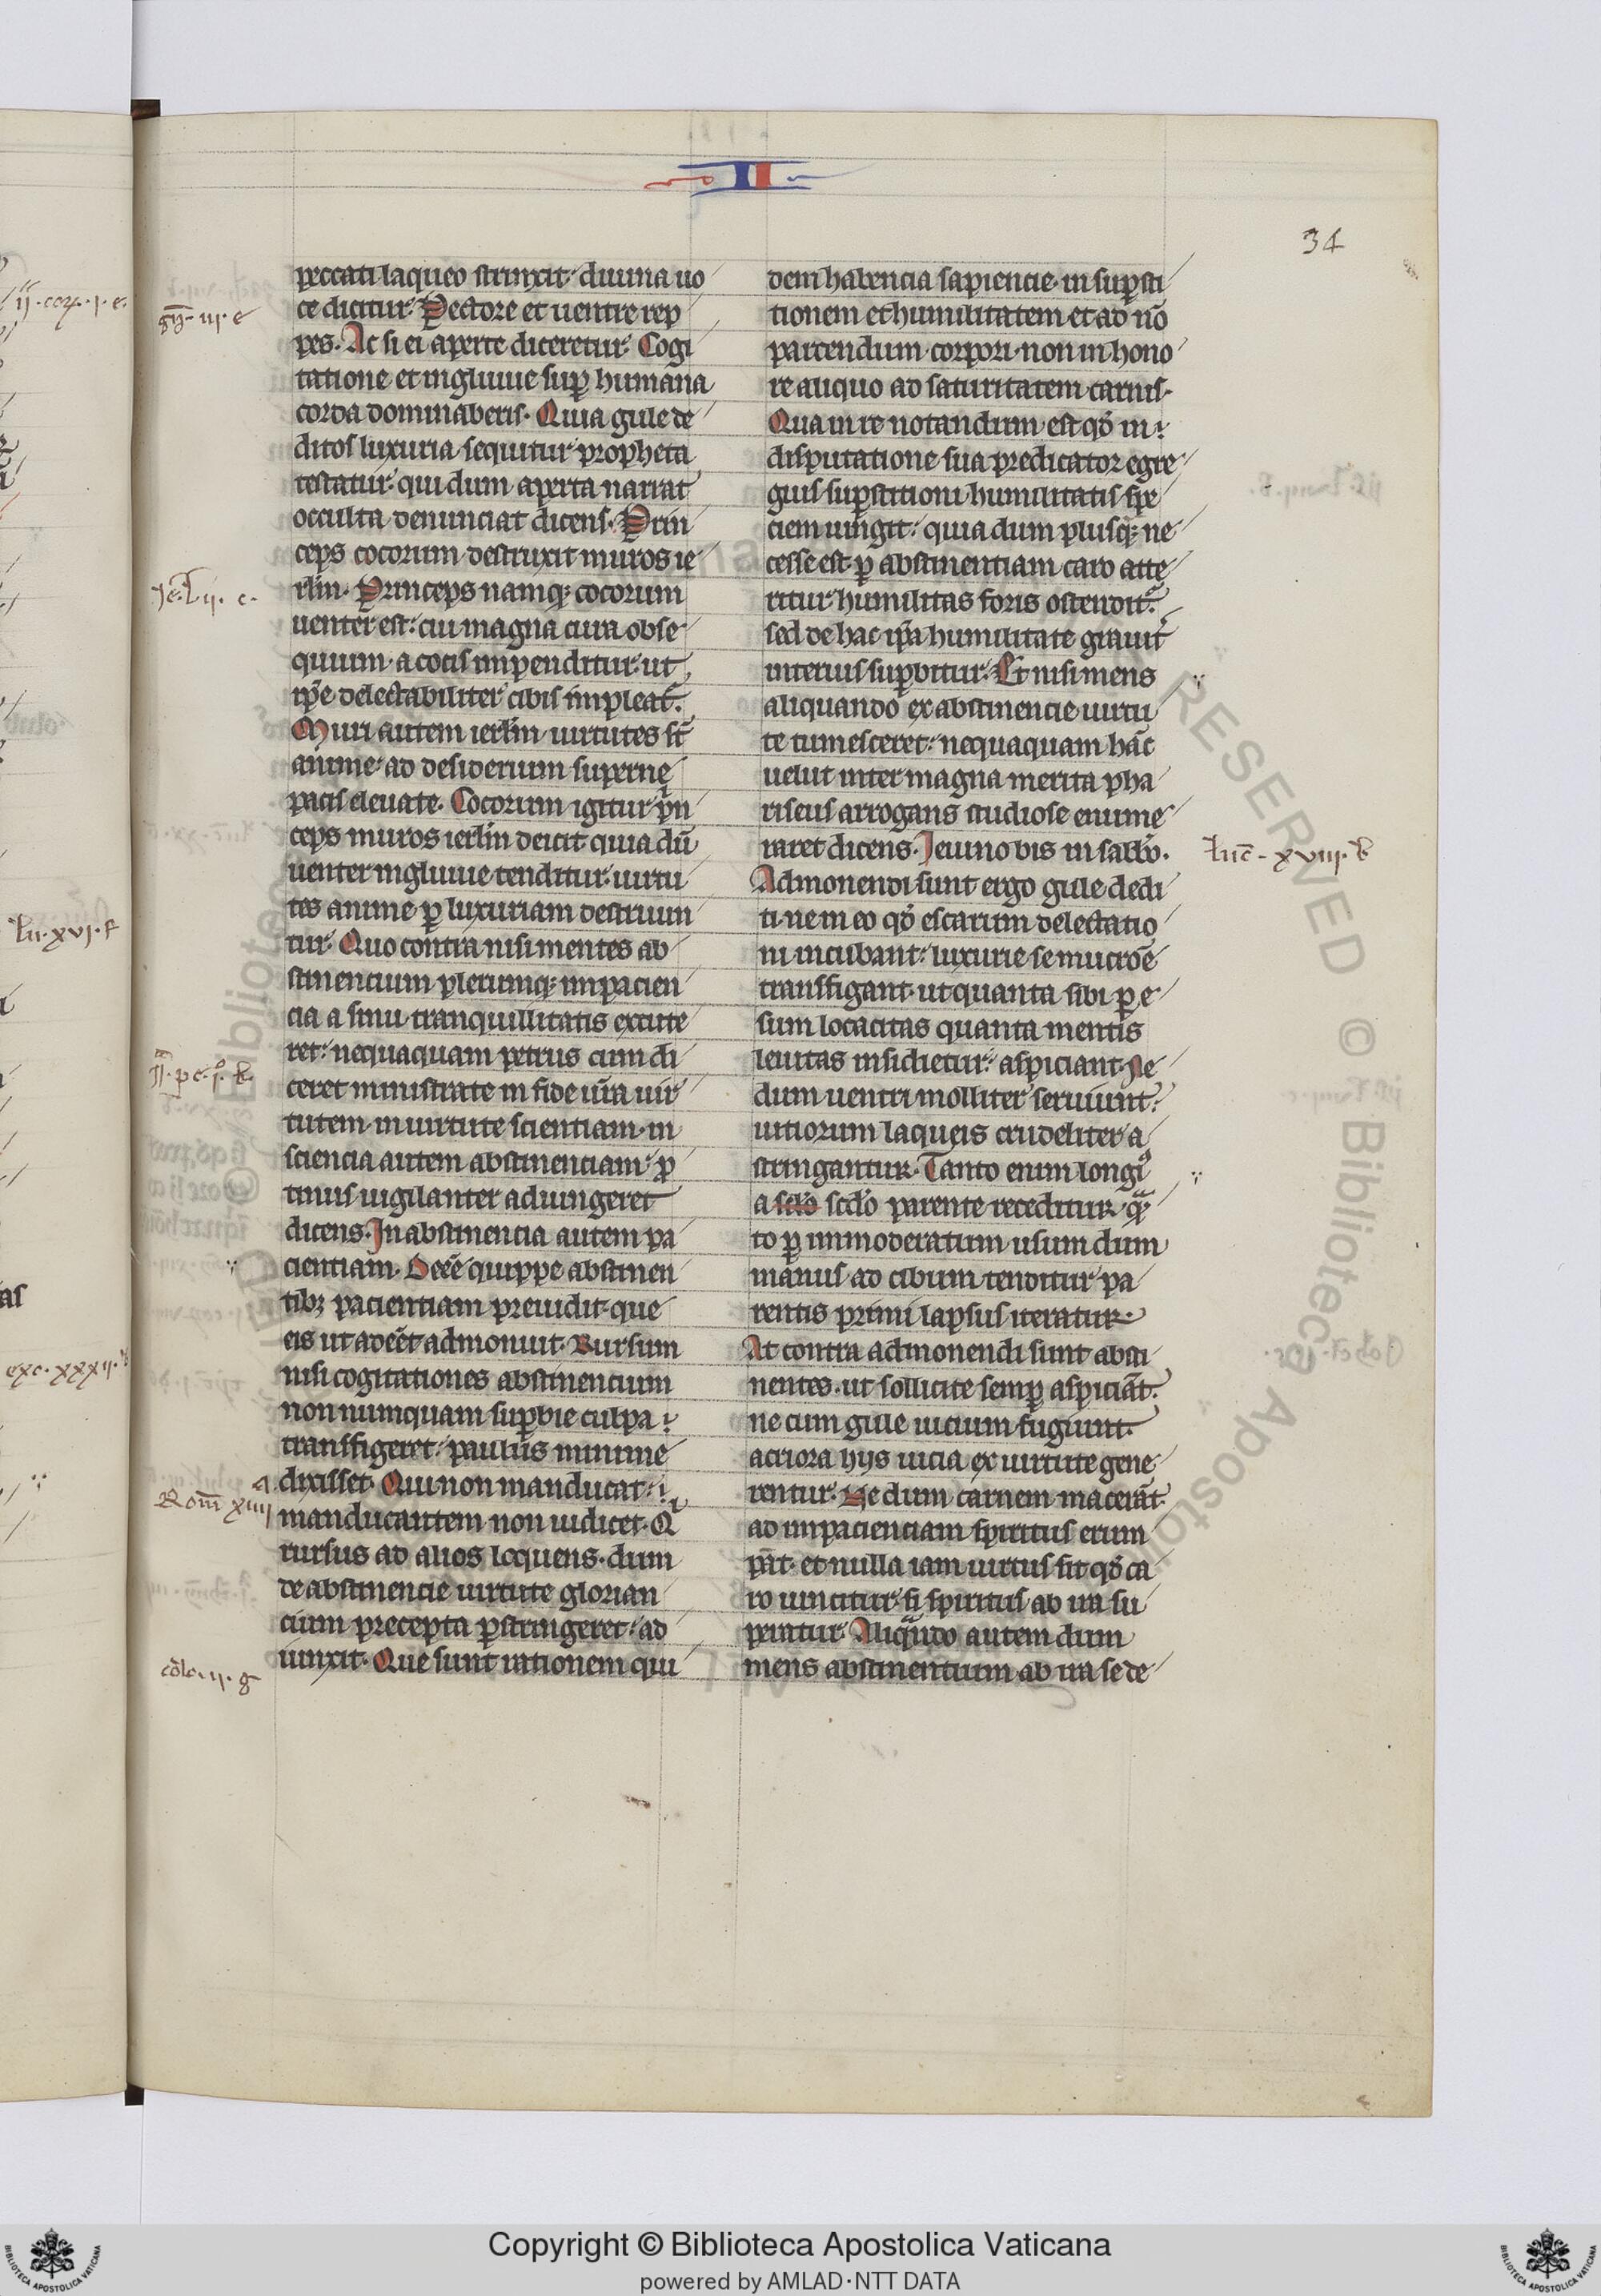 II
34
peccati laqueo strinxit. diuina uo
ce dicitur. Pectore et uentre rep
pes. Ac si ei aperte diceretur. Cogi
tatione et ingluuie sup̱ humana
corda dominaberis. Quia gule de
ditos luxuria sequitur propheta
testatur. qui dum aperta narrat
occulta denunciat dicens. Prin
ceps cocorum destruxit muros ie
rłm. Princeps namq; cocorum
uenter est. cui magna cura obse
quium a cocis impenditur. ut
ip̄e delectabiliter cibis impleat᷑.
Muri autem ierłm uirtutes st̄
anime ad desiderium superne
pacis eleuate. Cocorum igitur p͛n
ceps muros ierłm deicit quia dū
uenter ingluuie tenditur. uirtu
tes anime ꝑ luxuriam destruun
tur. Quo contra nisi mentes ab
stinencium plerumq; impacien
cia a sinu tranquillitatis excute
ret. nequaquam petrus cum di
ceret ministrate in fide ur̄a uir
tutem. in uirtute scientiam. in
sciencia autem abstinenciam. ꝓ
tinus uigilanter adiungeret
dicens. In abstinencia autem pa
cientiam. Deēē quippe abstinen
tibꝫ pacientiam preuidit. que
eis ut adeēt admonuit. Rursum
nisi cogitationes abstinencium
non numquam suꝑbie culpa
transfigeret. paulus minime
dixisset. Qui non manducat.
manducantem non iudicet. Qͥ
rursus ad alios loquens. dum
de abstinencie uirtute glorian
cium precepta ꝑstringeret. ad
iunxit. Que sunt rationem qui
dem habencia sapiencie. in suꝑsti
tionem et humilitatem et ad nō
parcendum corpori. non in hono
re aliquo ad saturitatem carnis.
Qua in re notandum est qd̕ in
disputatione sua predicator egre
gius suꝑstitioni humilitatis spe
ciem iungit. quia dum plusq̄; ne
cesse est ꝑ abstinentiam caro atte
ritur humilitas foris ostendit᷑.
sed de hac ip̄a humilitate grauit͛
interius suꝑbitur. Et nisi mens
aliquando ex abstinencie uirtu
te tumesceret. nequaquam hāc
uelut inter magna merita pha
riseus arrogans studiose enume
raret dicens. Ieiuno bis in sabb̕o.
Admonendi sunt ergo gule dedi
ti. ne in eo qd̕ escarum delectatio
ni incubant. luxurie se mucrōe
transfigant. ut quanta sibi ꝑ e
sum locacitas quanta mentis
leuitas insidietur. aspiciant. Ne
dum uentri molliter seruiunt.
uitiorum laqueis crudeliter a
stringantur. Tanto enim longiꝰ
a scdo scd̕o parente receditur. qᵃ̄
to ꝑ immoderatum usum dum
manus ad cibum tenditur. pa
rentis primi lapsus iteratur.
At contra admonendi sunt absti
nentes. ut sollicite semꝑ aspiciāt.
ne cum gule uicium fugiunt.
acriora hijs uicia ex uirtute gene
rentur. Ne dum carnem macerāt.
ad impacienciam spiritus erum
pāt. et nulla iam uirtus sit qd̕ ca
ro uincitur. si spiritus ab ira su
peratur. Aliqᵃn̄do autem dum
mens abstinentium ab ira se de
gen̄ iij e
Je. lij. c.
ij. pe. j. b.
Rom̄ xiiij a.
colo. ij. g
luc̄. xviij. b
ij. cor. j. e.
lu. xvj. f
exc. xxxij.
as
© Biblioteca Apostolica Vaticana
RESERVED
Copyright © Biblioteca Apostolica Vaticana
powered by AMLAD·NTT DATA
BIBLIOTECA APOSTOLICA VATICANA
BIBLIOTECA APOSTOLICA VATICANA